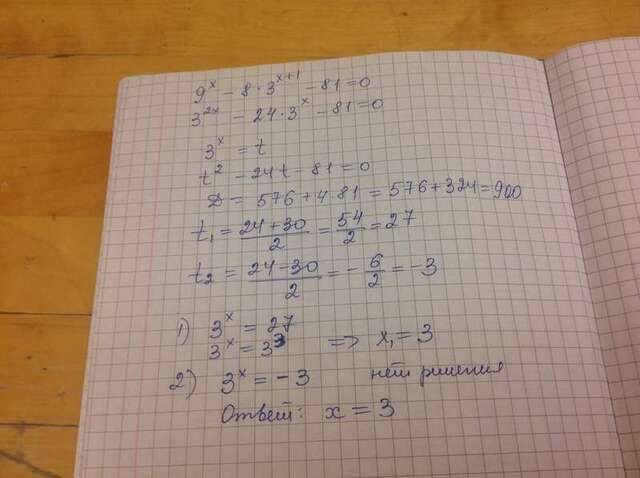 9^x − 8·3^{x+1} − 81 = 0
3^{2x} − 24·3^x − 81 = 0
3^x = t
t^2 − 24t − 81 = 0
D = 576 + 4·81 = 576 + 324 = 900
t₁ = (24+30)/2 = 54/2 = 27
t₂ = (24−30)/2 = −6/2 = −3
1) 3^x = 27
3^x = 3^3 => x₁ = 3
2) 3^x = −3 нет решения
Ответ: x = 3